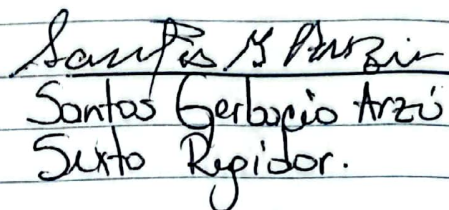 Santos G Arzú
Santos Gerbacio Arzú
Sexto Regidor.